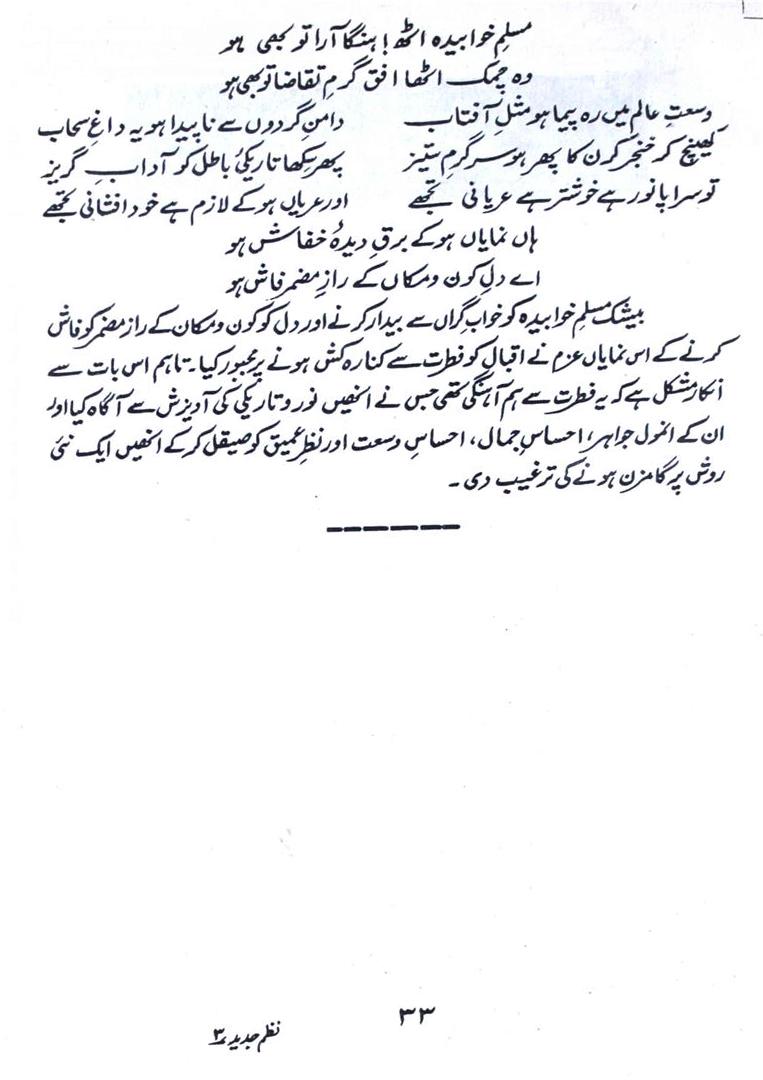 مسلمِ خوابیدہ اٹھ! ہنگا آرا تو بھی ہو
وہ چمک اٹھا افق گرمِ تقاضا تو بھی ہو
وسعتِ عالم میں رہ پیما ہو مثلِ آفتاب دامنِ گردوں سے ناپیدا ہو یہ داغِ سحاب
کھینچ کر خنجر کرن کا پھر ہو سرگرمِ ستیز پھر سکھا تاریکیٔ باطل کو آدابِ گریز
تو سراپا نور ہے خوشتر ہے عریانی تجھے اور عریاں ہو کے لازم ہے خود افشانی تجھے
ہاں نمایاں ہو کے برقِ دیدۂ خفاش ہو
اے دلِ کون و مکاں کے رازِ مضمر فاش ہو
بیشک مسلمِ خوابیدہ کو خوابِ گراں سے بیدار کرنے اور دل کو کون و مکان کے راز مضمر کو فاش
کرنے کے اس نمایاں عزم نے اقبال کو فطرت سے کنارہ کش ہونے پر مجبور کیا۔ تاہم اس بات سے
انکار مشکل ہے کہ یہ فطرت سے ہم آہنگی تھی جس نے انھیں نور و تاریکی کی آویزش سے آگاہ کیا اور
ان کے انمول جواہر، احساسِ جمال، احساسِ وسعت اور نظرِ عمیق کو صیقل کر کے انھیں ایک نئی
روش پر گامزن ہونے کی ترغیب دی۔
۳۳
نظم جدید ۳